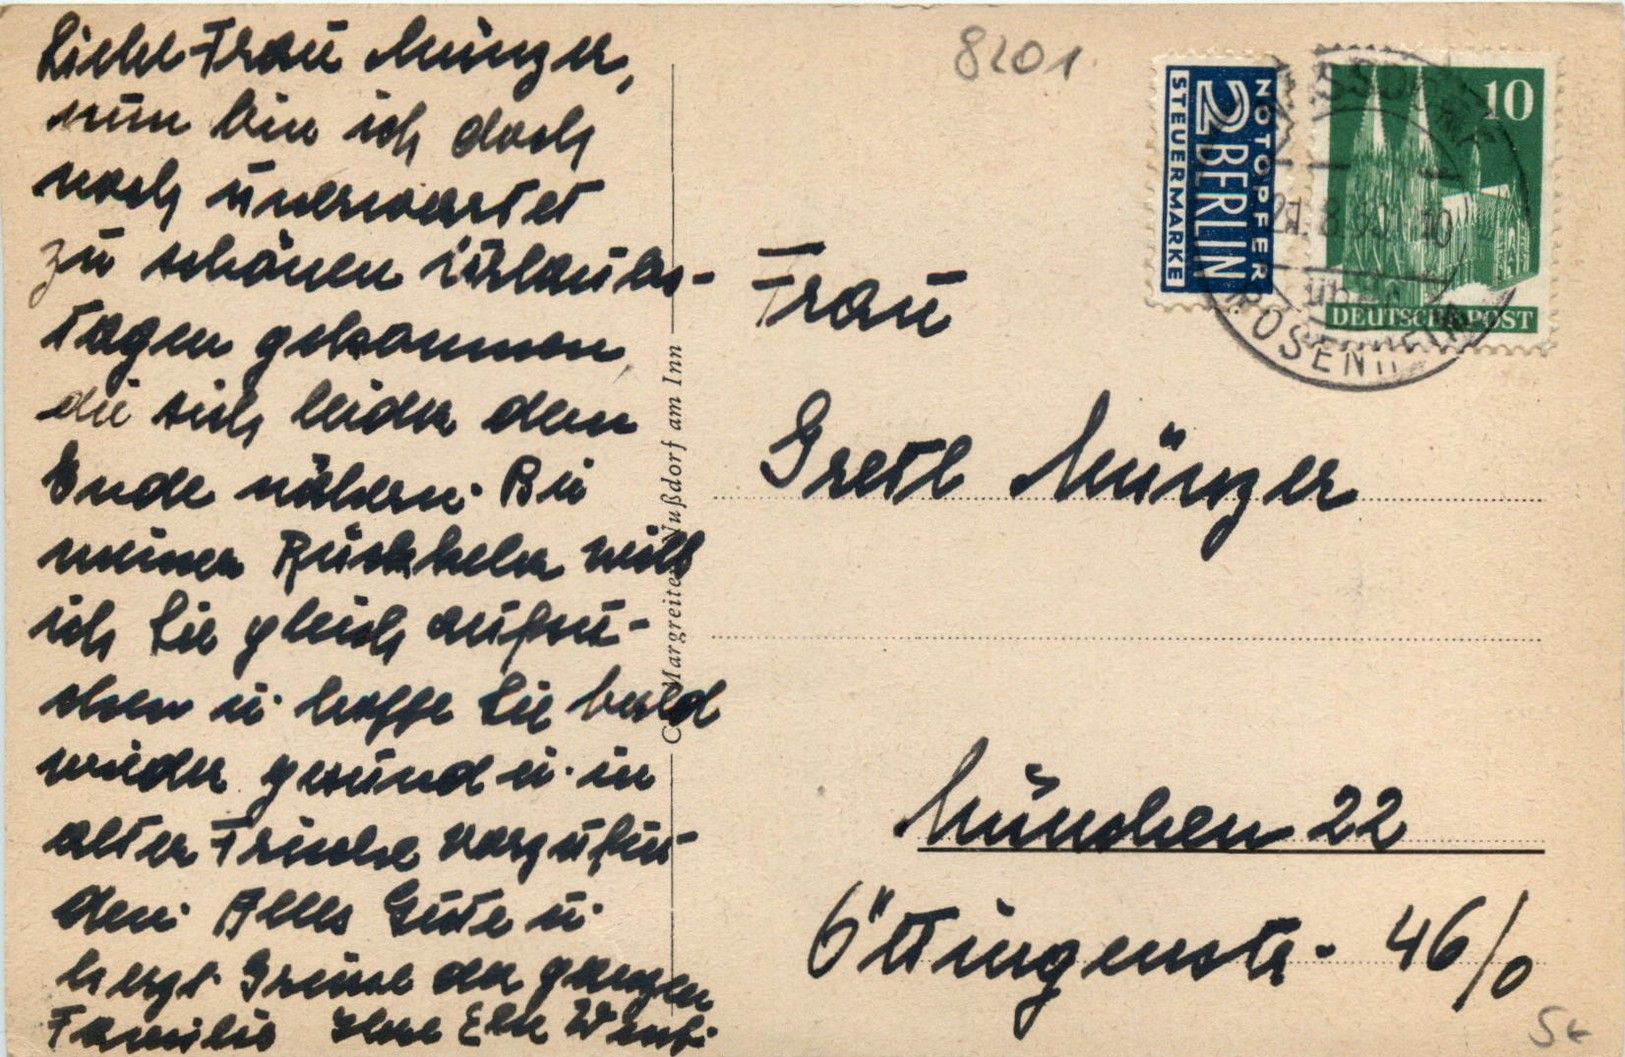 Liebe Frau Münzer,
nun bin ich doch
noch unerwartet
zu schönen Urlaubs-
tagen gekommen,
die sich leider dem
Ende nähern. Bei
meiner Rückkehr will
ich Sie gleich aufsu-
chen u. hoffe Sie bald
wieder gesund u. in
alter Frische vorzufin-
den. Alles Gute u.
herzl. Grüsse der ganzen
Familie Ihre Else
Margreiter, Nußdorf am Inn
8201
NOTOPFER
2 BERLIN
STEUERMARKE
10
DEUTSCHE POST
21.8.50
ROSENHEIM
Frau
Gretl Münzer
München 22
Öttingenstr. 46/0
St